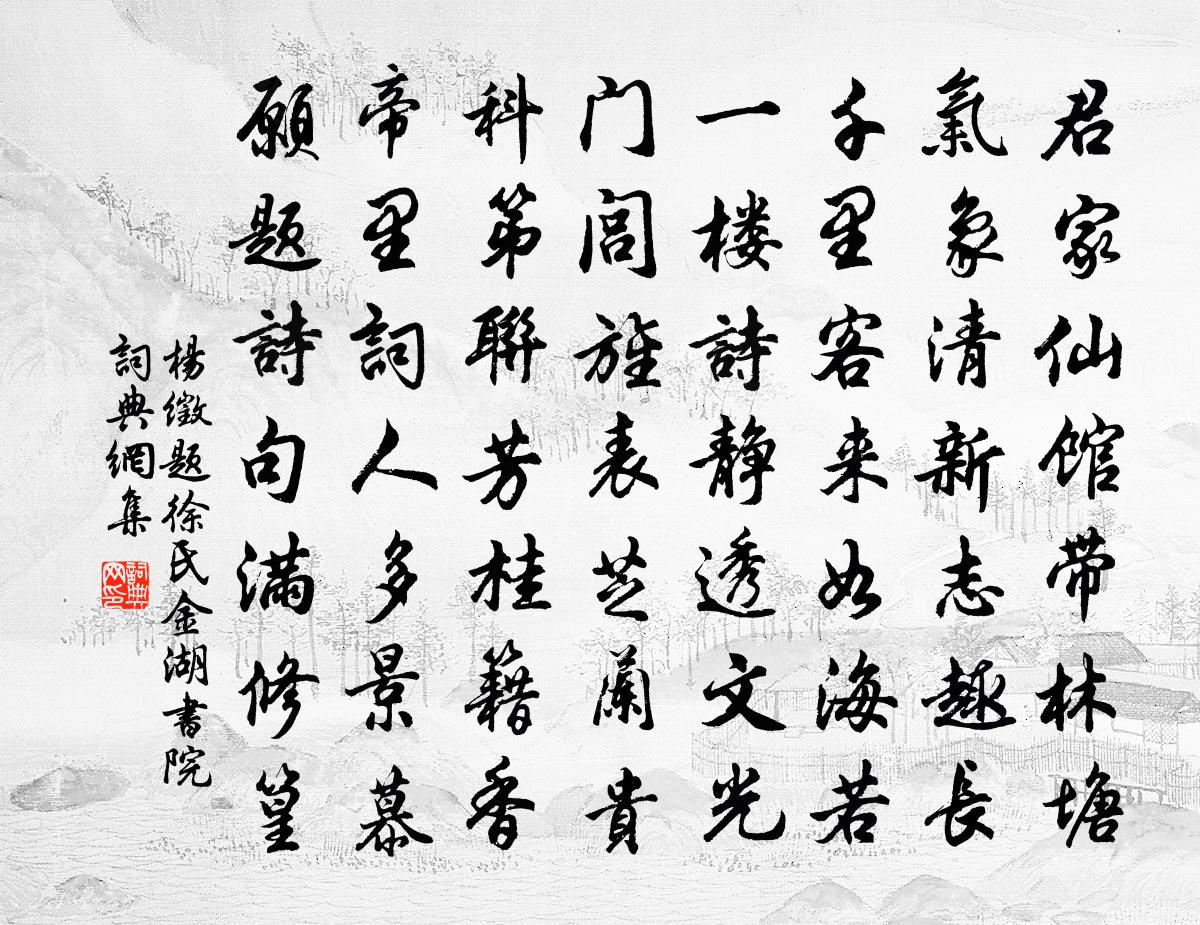 君家仙馆带林塘
氣象清新志趣長
千里客来如海若
一楼詩静透文光
门闾旌表芝蘭貴
科第聯芳桂籍香
帝里詞人多景慕
願题詩句满修篁
楊徵题徐氏金湖書院
詞典網集
詞典网印